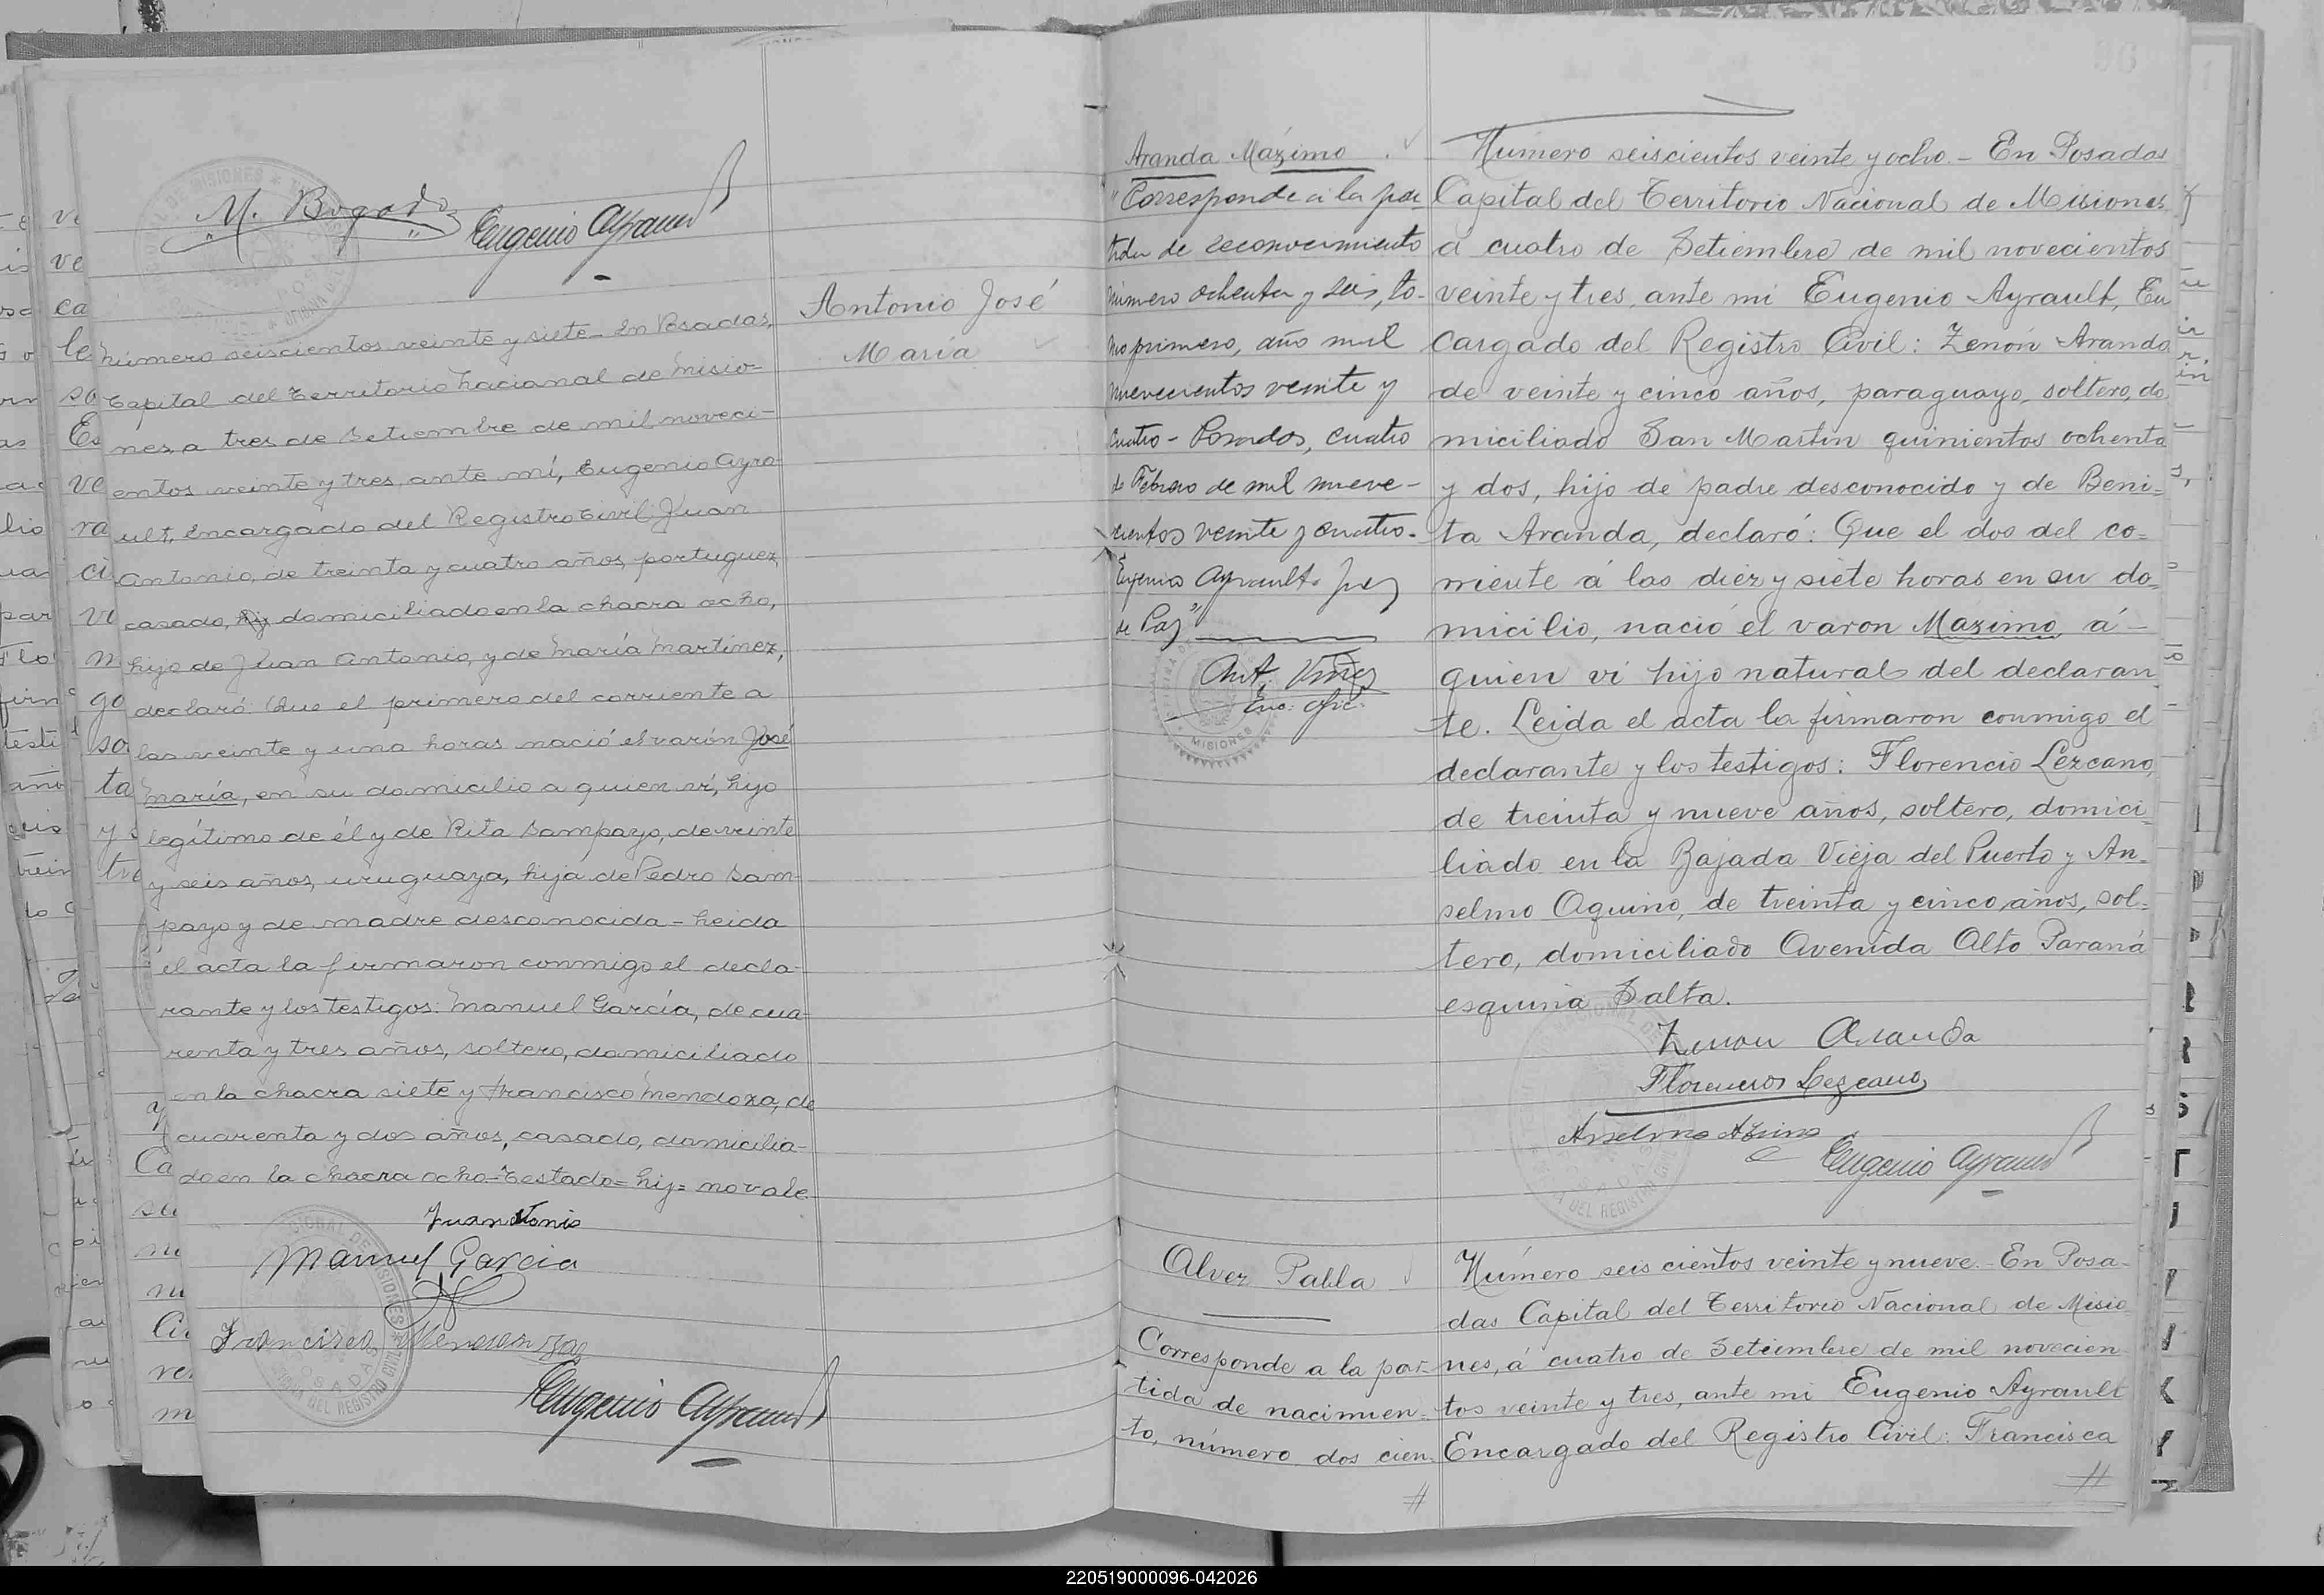 M. Bogado
Eugenio Ayrault
Antonio José
María
Número seiscientos veinte y siete - En Posadas,
Capital del Territorio Nacional de Misio-
nes, a tres de Setiembre de mil noveci-
entos veinte y tres, ante mí, Eugenio Ayra-
ult, Encargado del Registro Civil: Juan
Antonio, de treinta y cuatro años, portuguez,
casado, hij domiciliado en la chacra ocho,
hijo de Juan Antonio, y de María Martinez,
declaró: Que el primero del corriente a
las veinte y una horas nació el varón José
María, en su domicilio a quien ví, hijo
legítimo de él y de Rita Sampayo, de veinte
y seis años, uruguaya, hija de Pedro Sam-
payo y de madre desconocida - Leida
el acta la firmaron conmigo el decla-
rante y los testigos: Manuel García, de cua-
renta y tres años, soltero, domiciliado
en la chacra siete y Francisco Mendoza, de
cuarenta y dos años, casado, domicilia-
do en la chacra ocho - Testado = hij = no vale.
Juan Antonio
Manuel Garcia
Francisco
Eugenio Ayrault
Aranda Máximo
"Corresponde a la par
tida de reconocimiento
número ochenta y seis, to-
mo primero, año mil
nuevecientos veinte y
cuatro - Posadas, cuatro
de Febrero de mil nueve-
cientos veinte y cuatro.
Eugenio Ayrault. Juez
de Paz"
Ant.
Enc. Ofic.
MISIONES
Número seiscientos veinte y ocho. - En Posadas
Capital del Territorio Nacional de Misiones
á cuatro de Setiembre de mil novecientos
veinte y tres, ante mi Eugenio Ayrault, En
cargado del Registro Civil: Zenón Aranda
de veinte y cinco años, paraguayo, soltero, do
miciliado San Martin quinientos ochenta
y dos, hijo de padre desconocido y de Beni=
ta Aranda, declaró: Que el dos del co=
rriente á las diez y siete horas en su do=
micilio, nació el varon Máximo, á -
quien vi hijo natural del declaran
te. Leida el acta la firmaron conmigo el
declarante y los testigos: Florencio Lezcano,
de treinta y nueve años, soltero, domici-
liado en la Bajada Vieja del Puerto y An-
selmo Aquino, de treinta y cinco años, sol=
tero, domiciliado Avenida Alto Paraná
esquina Salta.
Zenon Aranda
Florencio Lezcano
Anselmo Aquino
Eugenio Ayrault
Alvez Pabla
Corresponde a la par-
tida de nacimien-
to, número dos cien-
//
Número seis cientos veinte y nueve. - En Posa-
das Capital del Territorio Nacional de Misio
nes, á cuatro de Setiembre de mil novecien
tos veinte y tres, ante mi Eugenio Ayrault
Encargado del Registro Civil: Francisca
//
220519000096-042026